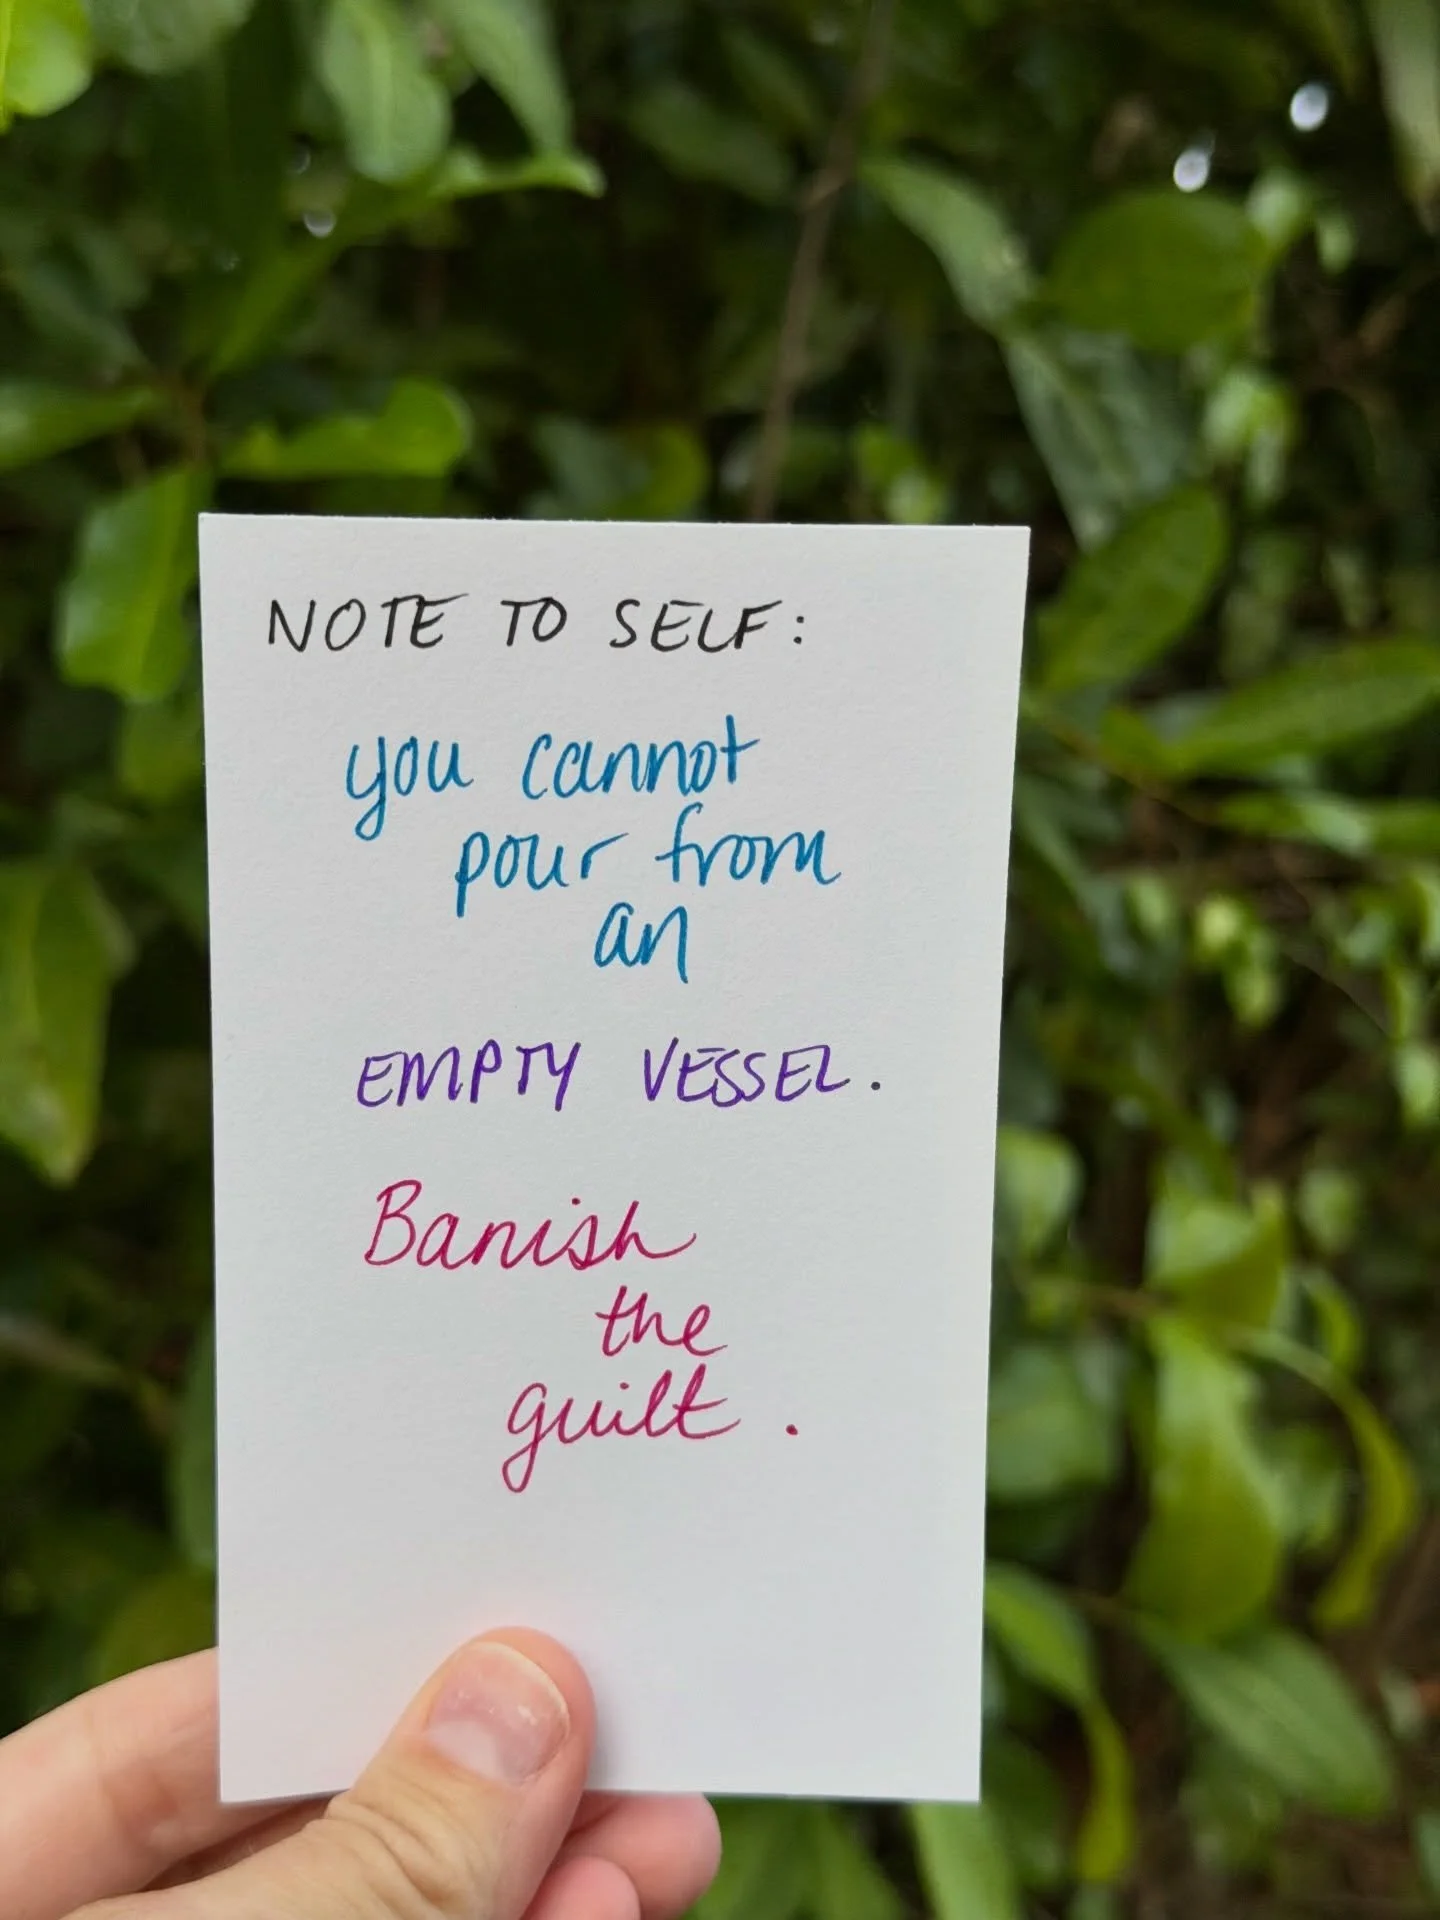 NOTE TO SELF:
you cannot
pour from
an
EMPTY VESSEL.
Banish
the
guilt.